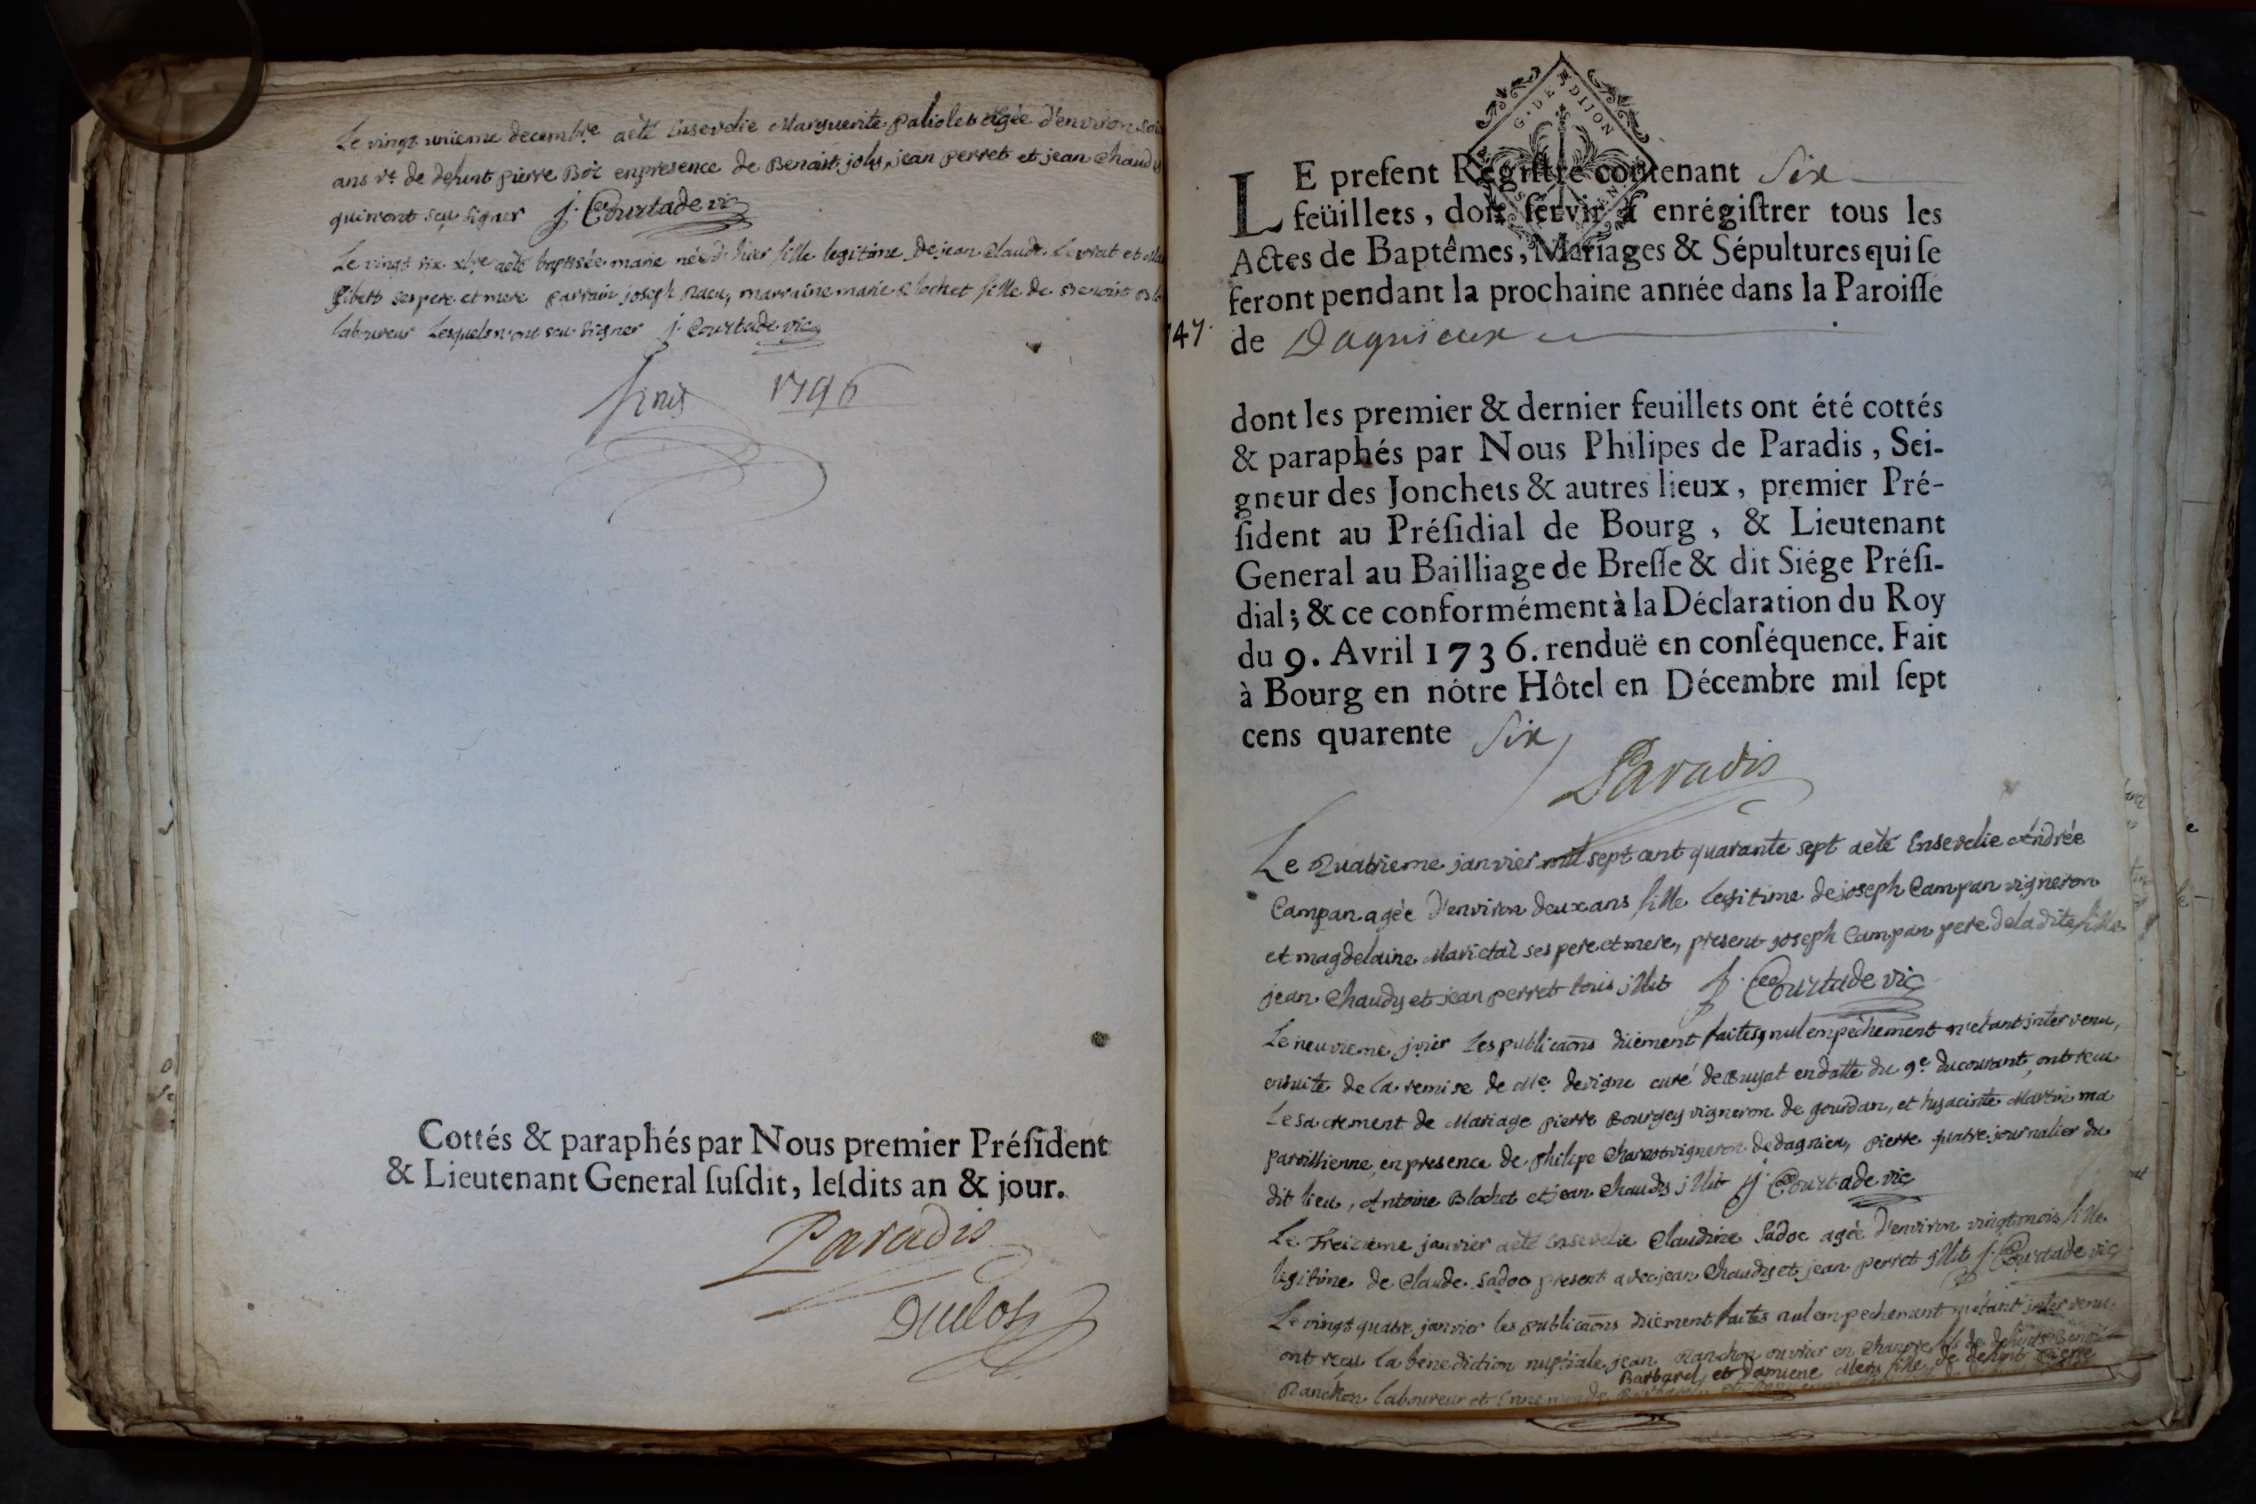 Le vingt unieme decembre aeté Ensevelie Marguerite paliolet agée d'environ
ans ve de defunt pierre Boi enpresence de Benoit joly, jean perret et jean Chaudy
qui n'ont sçu signer j. Courtade vic
Le vingt six xbre aeté baptisée marie née d'hier fille legitime de jean Claude et
ses pere et mere parrain joseph marraine marie Blochet fille de Benoist
laboureur Lesquels n'ont scu signer j. Courtade vic
finis 1746
Cottés & paraphés par Nous premier Président
& Lieutenant General susdit, lesdits an & jour.
Paradis
Duclos
G. DE DIJON
LE present Régistre contenant Six
feüillets, doit servir à enrégistrer tous les
Actes de Baptêmes, Mariages & Sépultures qui se
feront pendant la prochaine année dans la Paroisse
747.
de Dagnieux
dont les premier & dernier feuillets ont été cottés
& paraphés par Nous Philipes de Paradis, Sei-
gneur des Jonchets & autres lieux, premier Pré-
sident au Présidial de Bourg, & Lieutenant
General au Bailliage de Bresse & dit Siége Prési-
dial; & ce conformément à la Déclaration du Roy
du 9. Avril 1736. renduë en conséquence. Fait
à Bourg en nôtre Hôtel en Décembre mil sept
cens quarente Six
Paradis
Le Quatrieme janvier mil sept cent quarante sept aeté Ensevelie Andrée
Campan agée d'environ deux ans fille legitime de joseph Campan vigneron
et magdelaine ses pere et mere, present joseph Campan pere de la dite fille
jean Chaudy et jean perret tous illit j. Courtade vic
Le neuvieme jvier Les publicaons düement faites, nul empêchement n'etant intervenu,
ensuite de la remise de Me devigne curé de en datte du 9e du courant, ont recu
Le sacrement de Mariage pierre Bourgey vigneron de gourdan, et hyacinte Martin ma
paroissienne, en presence de philipe vigneron de dagnieu, pierre journalier du
dit lieu, Antoine Blochet et jean Chaudy illit j. Courtade vic
Le Treizieme janvier aeté ensevelie Claudine Sadoc agée d'environ vingt mois fille
legitime de Claude Sadoc present avec jean Chaudy et jean perret illit j. Courtade vic
Le vingt quatre janvier les publicaons düement faites nul empechement n'etant intervenu
ont recu la benediction nuptiale jean Ranchon ouvrier en chanvre fils de defunts Benoit
Barbarel, et Damiene fille de defunt pierre
Ranchon laboureur et